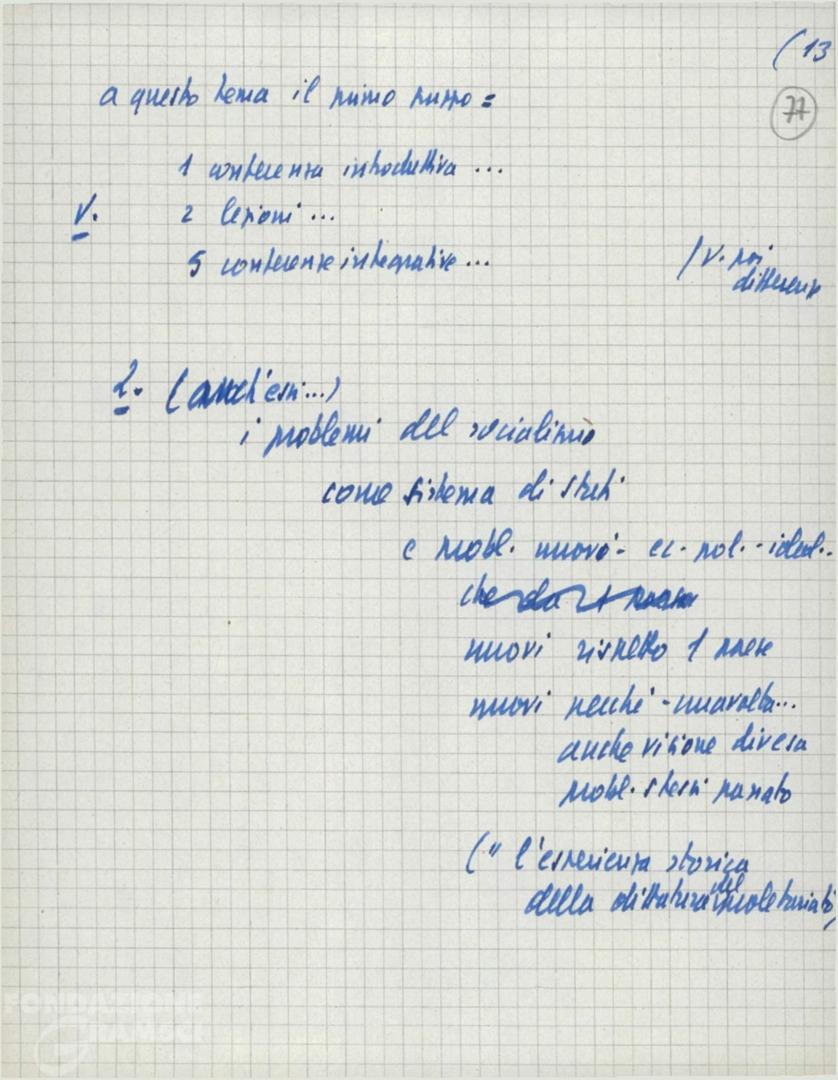 (13
77
a questo tema il primo russo =
1 conferenza introduttiva ...
V. 2 lezioni ...
5 conferenze integrative ...
/ v. poi
differenze
2. (anch'essi ...)
i problemi del socialismo
come sistema di stati
e probl. nuovi - ec. pol. - ideol. -
che da 1 paese
nuovi rispetto 1 paese
nuovi perché -
anche visione diversa
probl. stessi passato
(" l'esperienza storica
della dittatura del proletariato
FONDAZIONE
GRAMSCI